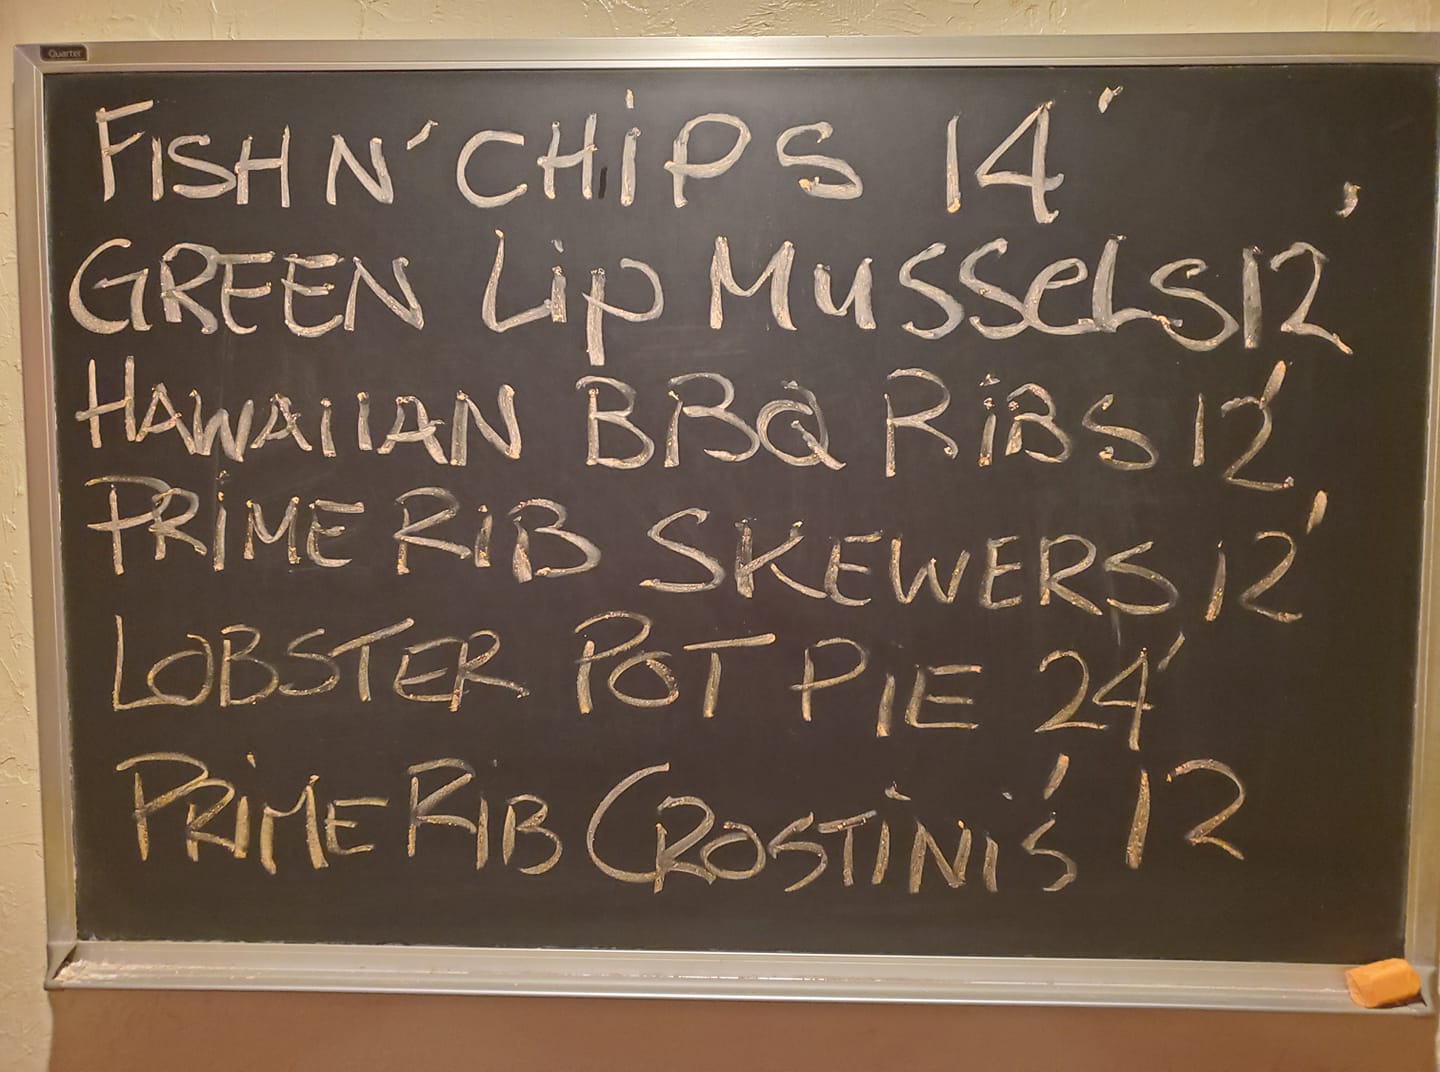 Quartet
FISH N' CHiPS 14'
GREEN Lip MusSeLS 12'
HAWAIIAN BBQ RiBS 12'
PRiME RiB SKEWERS 12'
LOBSTER POT PIE 24'
PRiME RIB CROSTiNi'S 12